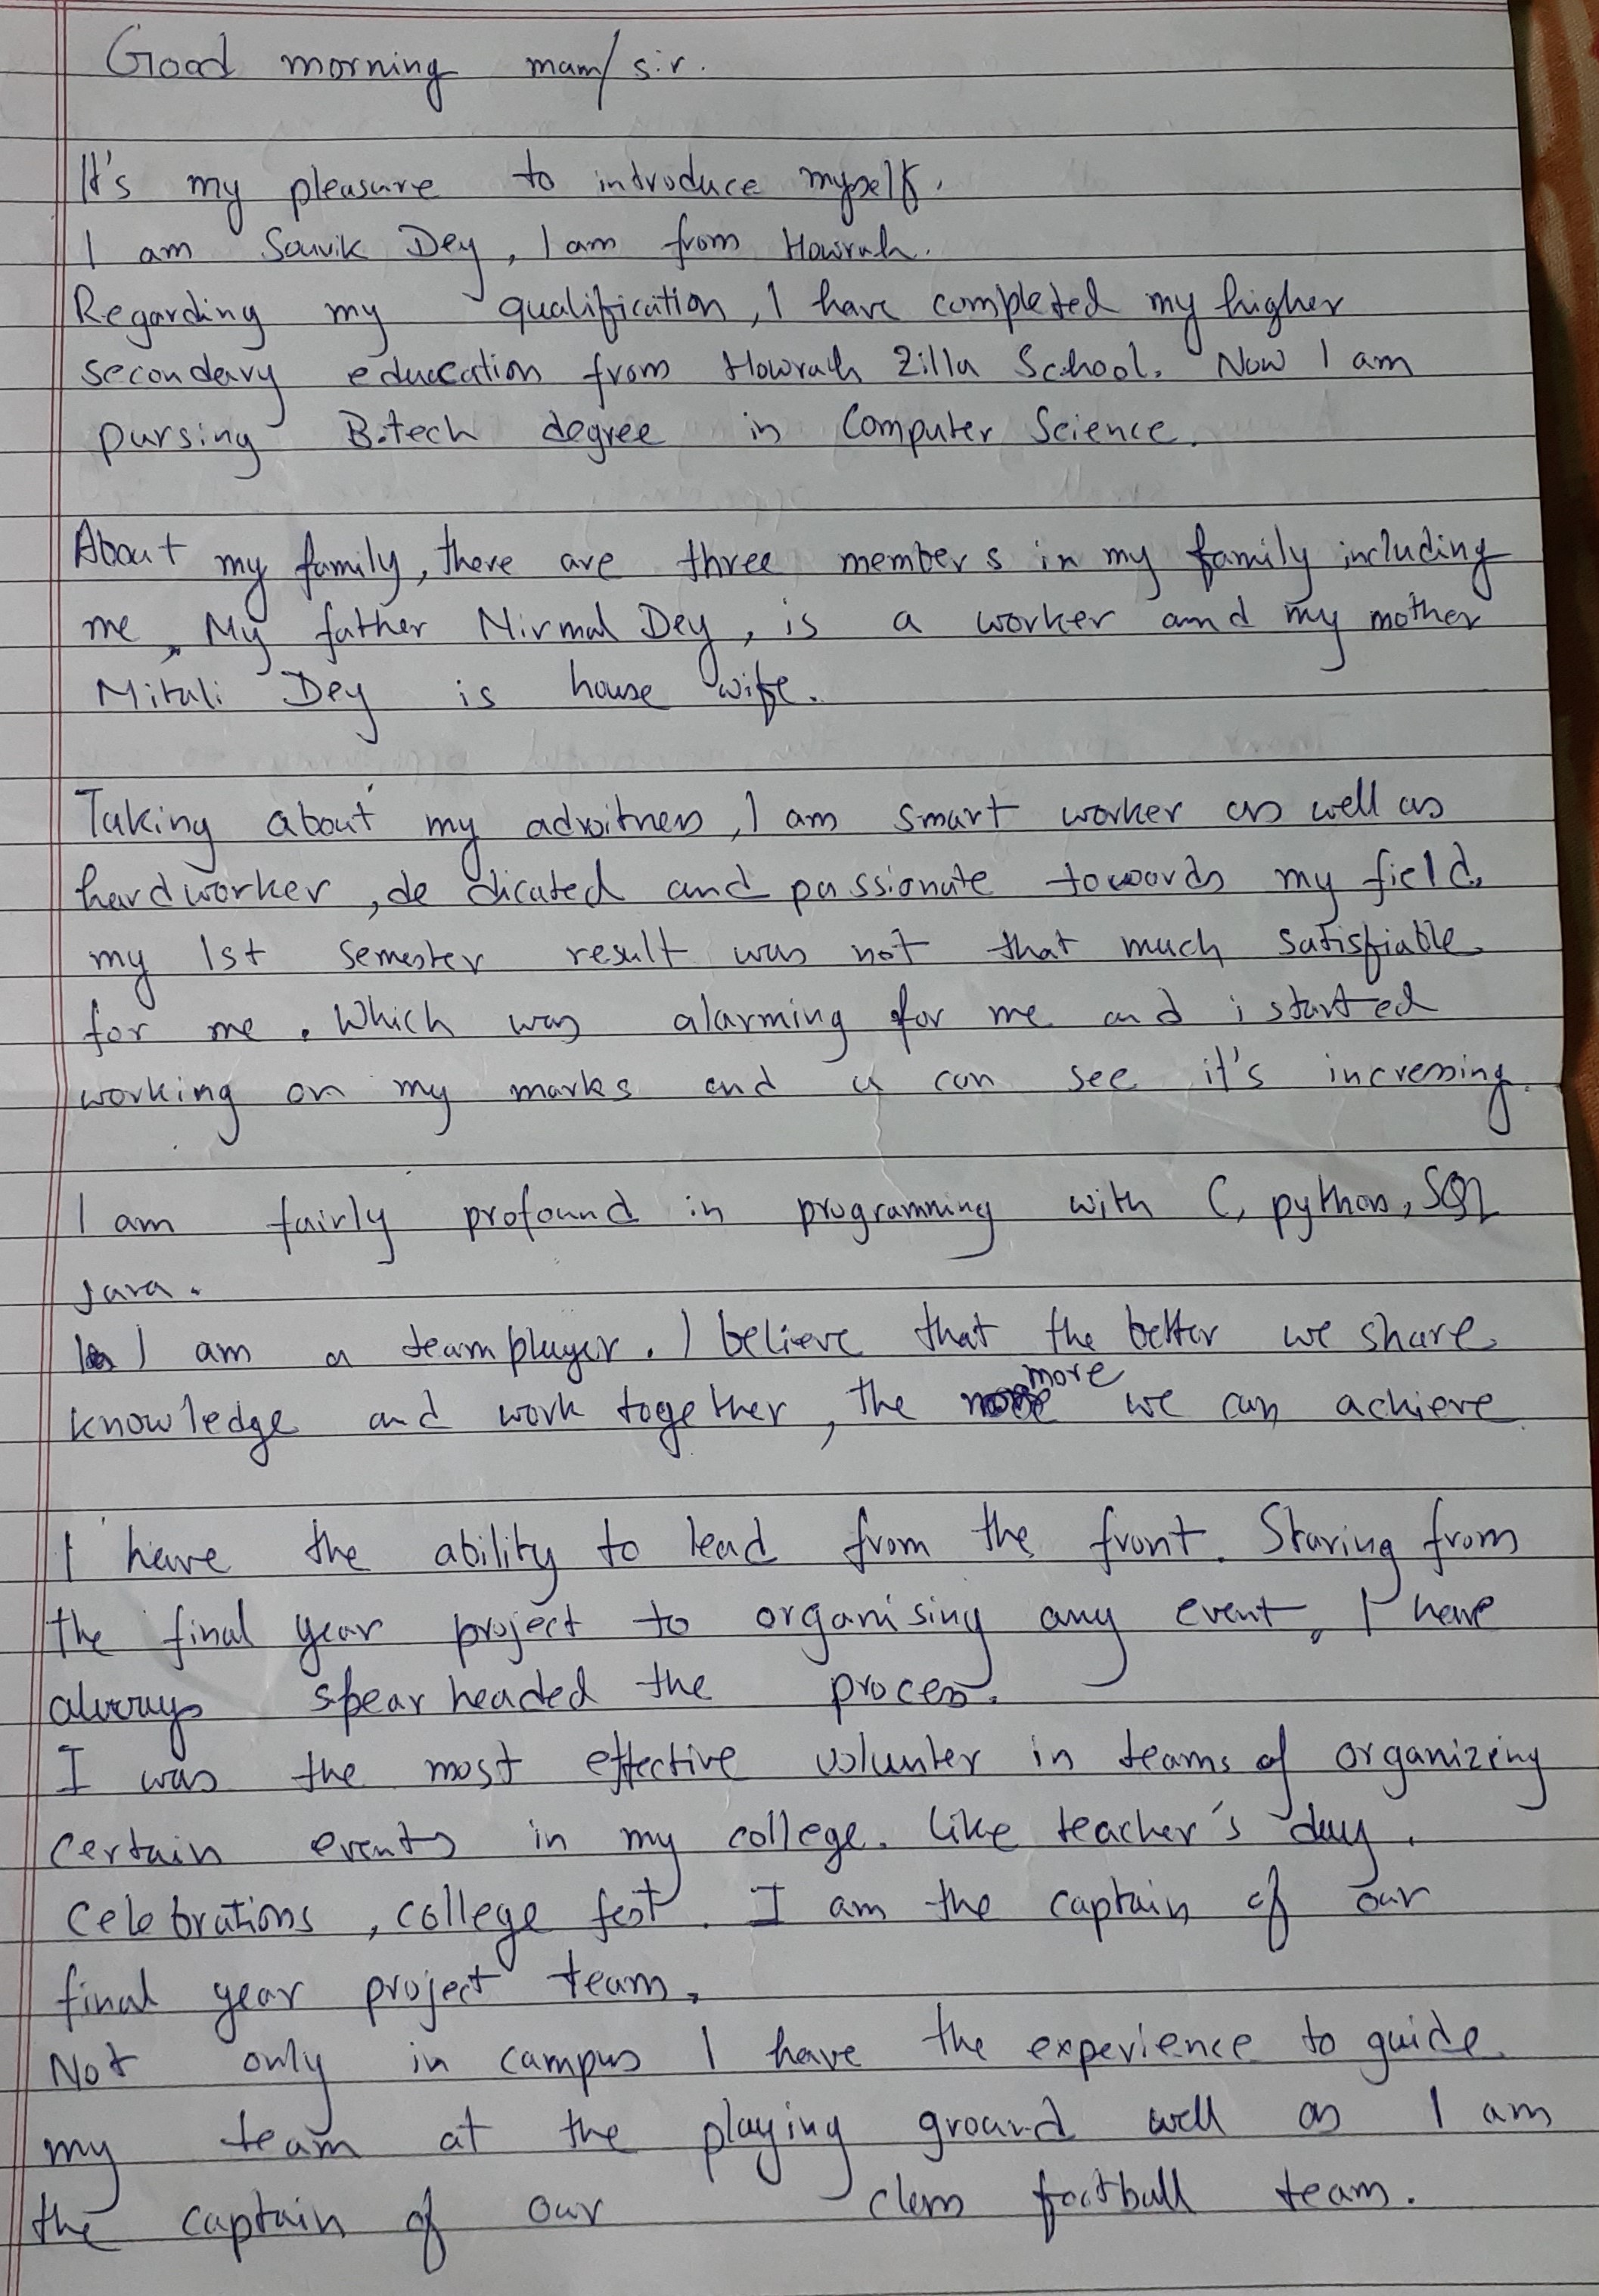 Good morning mam/sir.
It's my pleasure to introduce myself.
I am Souvik Dey, I am from Howrah.
Regarding my qualification, I have completed my higher
secondary education from Howrah Zilla School. Now I am
pursing B.tech degree in Computer Science.
About my family, there are three members in my family including
me. My father Nirmal Dey, is a worker and my mother
Mitali Dey is house wife.
Taking about my adroitness, I am smart worker as well as
hardworker, dedicated and passionate towards my field,
my 1st semester result was not that much satisfiable
for me. Which was alarming for me and i started
working on my marks and u can see it's incresing.
I am fairly profound in programming with C, python, SQL
Java.
I am a team player. I believe that the better we share
knowledge and work together, the more we can achieve
I have the ability to lead from the front. Staring from
the final year project to organising any event, I have
always spearheaded the process.
I was the most effective volunter in teams of organizing
certain events in my college. Like teacher's day.
celebrations, college fest. I am the captain of our
final year project team,
Not only in campus I have the experience to guide
my team at the playing ground well as I am
the captain of our class football team.